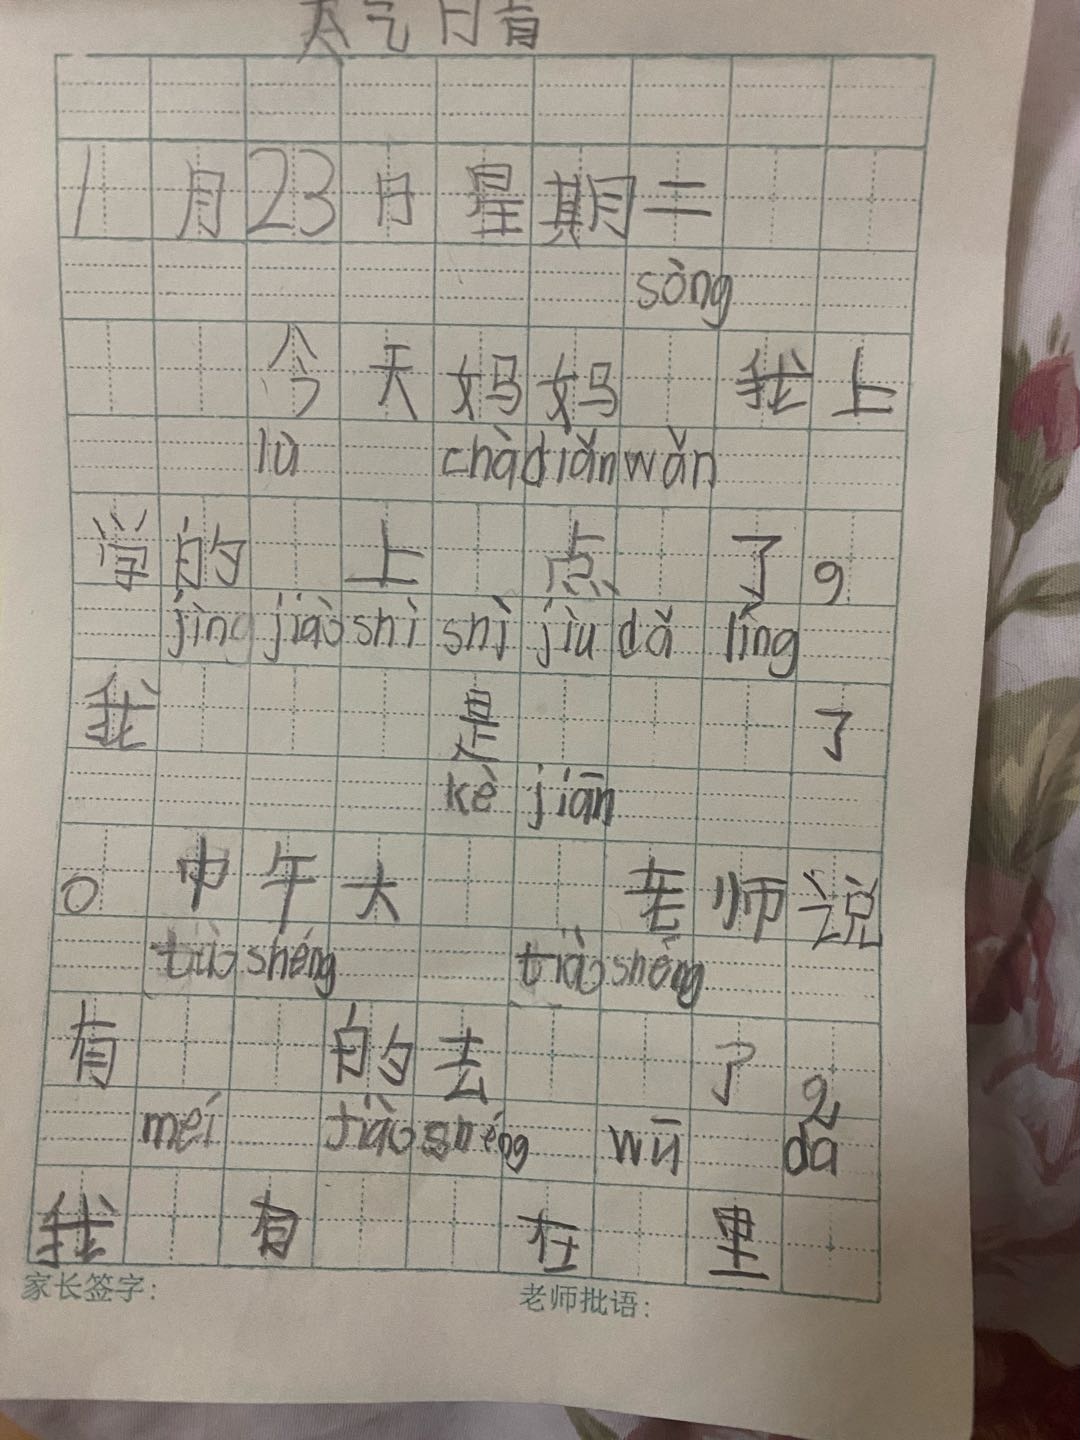 天气日有
1月23日星期二
sòng
今天妈妈 我上
lù chàdiǎnwǎn
学的 上 点 了,
jìng jiào shì shì jiù dǎ lǐng
我 是 了
kè jiān
。中午大 老师说
tiào shéng tiào shéng
有 的去 了,
méi tiào shéng wū da
我 有 在 里
家长签字: 老师批语: